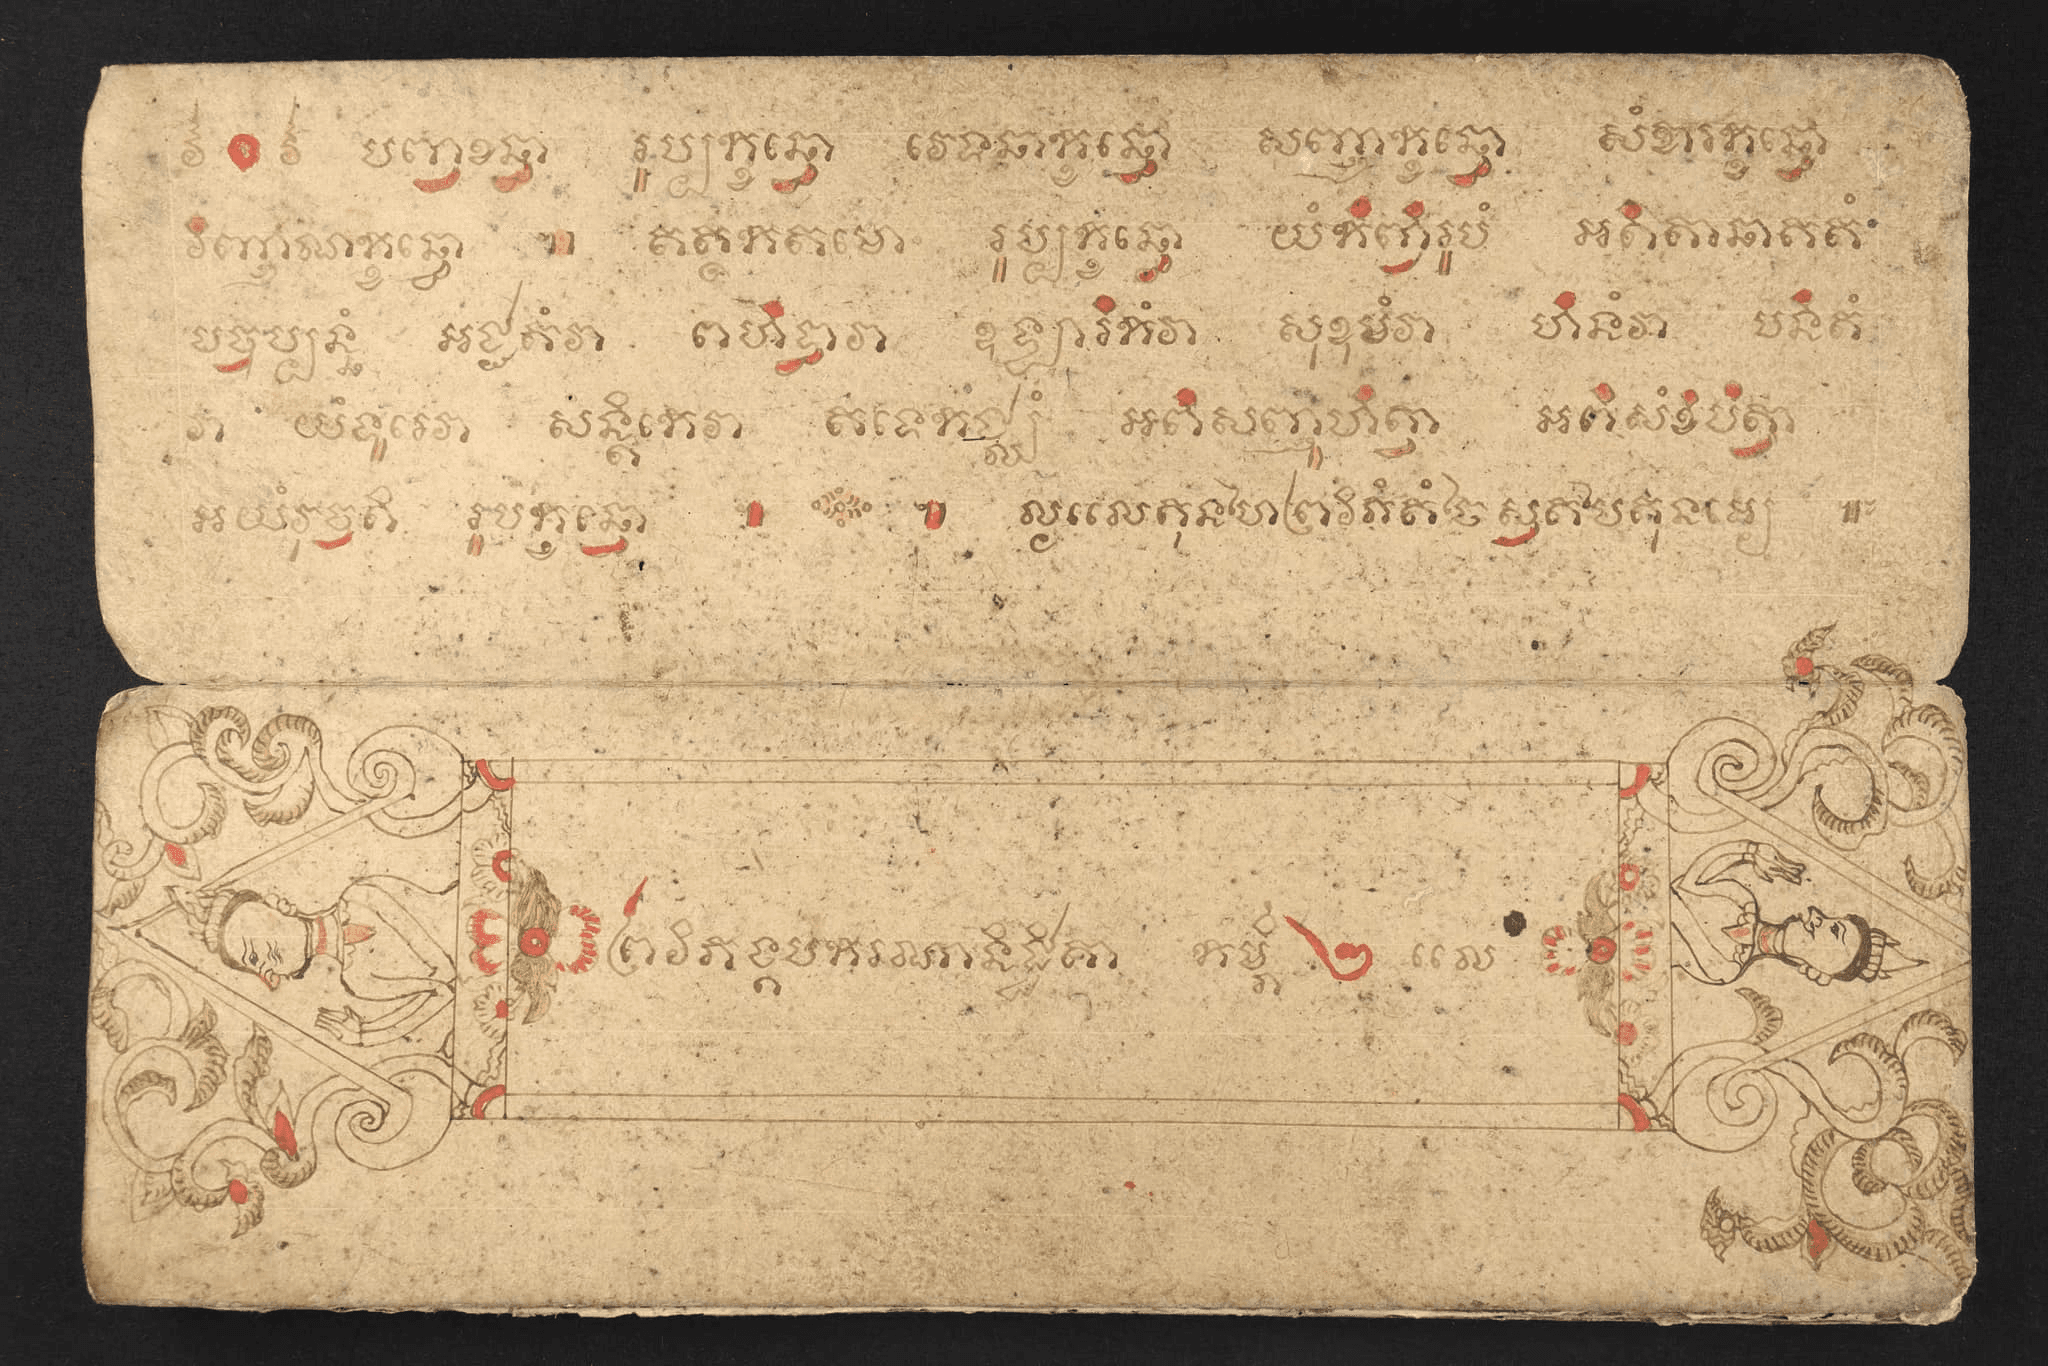 បញ្ចខន្ធា រូប្បក្ខន្ធោ វេទនាក្ខន្ធោ សញ្ញាក្ខន្ធោ សំខារក្ខន្ធោ
វិញ្ញាណក្ខន្ធោ តត្ថកតមោ រូប្បក្ខន្ធោ យំកិញ្ចិរូបំ អតិតានាគតំ
បច្ចប្បន្នំ អជ្ឈតំវា ពហិទ្ធាវា ឱឡ្យារិកំវា សុខុមំវា ហិនំវា បនិតំ
វា យំទូរេវា សន្តិកេវា តទេកជ្ឈំ អភិសញ្ញូហិត្វា អភិសំខិបិត្វា
អយំវុច្ចតិ រូបក្ខន្ធោ
ព្រវិភង្គបករណានិដ្ឋិតា ២ លេ